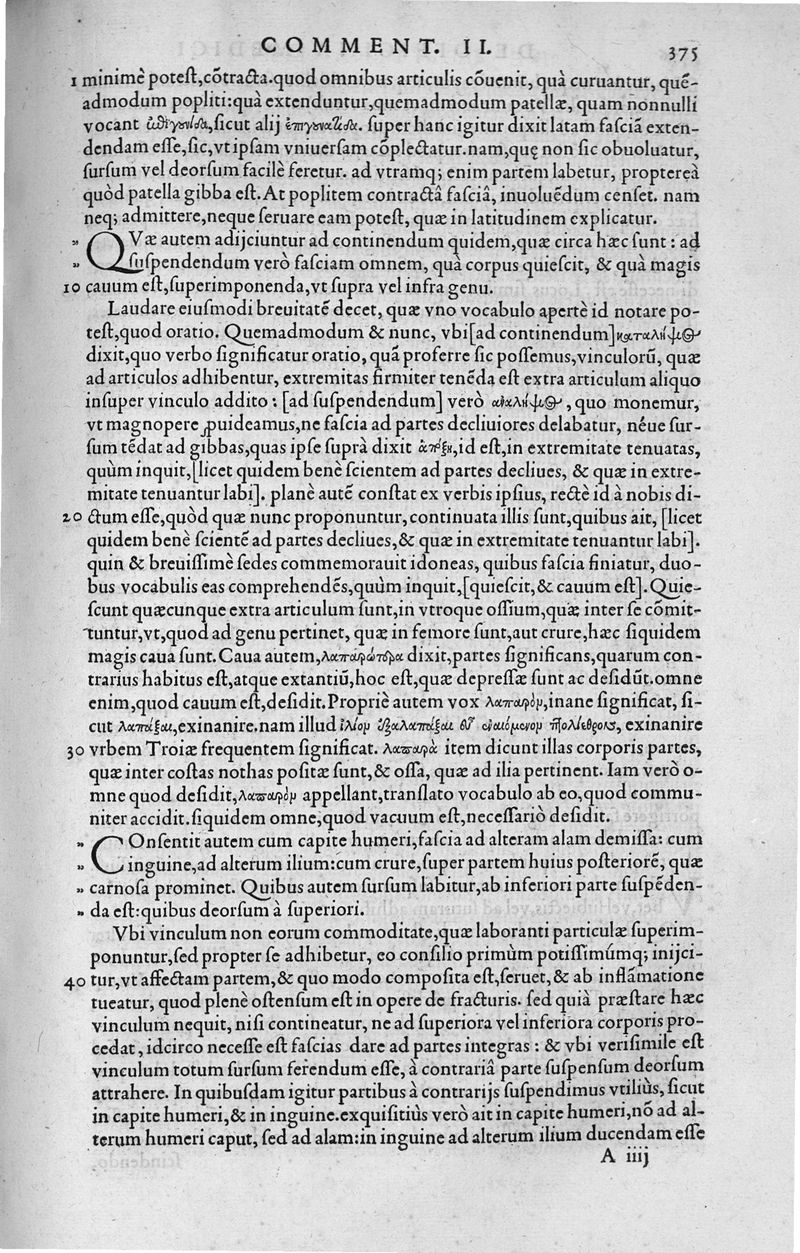 COMMENT. II.
375
1 minimè poteſt,cõtracta.quod omnibus articulis cõuenit, quà curuantur, quẽ-
admodum popliti:quà extenduntur,quemadmodum patellæ, quam nonnulli
vocant ſicut alij ſuper hanc igitur dixit latam faſciã exten-
dendam eſſe,ſic,vt ipſam vniuerſam cõplectatur.nam,quę non ſic obuoluatur,
ſurſum vel deorſum facilè feretur. ad vtramq; enim partem labetur, proptereà
quòd patella gibba eſt. At poplitem contractâ faſciâ, inuoluẽdum cenſet. nam
neq; admittere,neque ſeruare eam poteſt, quæ in latitudinem explicatur.
„ QVæ autem adijciuntur ad continendum quidem,quæ circa hæc ſunt : ad
„ ſuſpendendum verò faſciam omnem, quà corpus quieſcit, & quà magis
10 cauum eſt,ſuperimponenda,vt ſupra vel infra genu.
Laudare eiuſmodi breuitatẽ decet, quæ vno vocabulo apertè id notare po-
teſt,quod oratio. Quemadmodum & nunc, vbi[ad continendum]κατάληψιϛ
dixit,quo verbo ſignificatur oratio, quã proferre ſic poſſemus,vinculorũ, quæ
ad articulos adhibentur, extremitas firmiter tenẽda eſt extra articulum aliquo
inſuper vinculo addito : [ad ſuſpendendum] verò ἀνάληψιϛ, quo monemur,
vt magnopere ꝓuideamus,ne faſcia ad partes decliuiores delabatur, néue ſur-
ſum tẽdat ad gibbas,quas ipſe ſuprà dixit id eſt,in extremitate tenuatas,
quùm inquit,[licet quidem benè ſcientem ad partes decliues, & quæ in extre-
mitate tenuantur labi]. planè autẽ conſtat ex verbis ipſius, rectè id à nobis di-
20 ctum eſſe,quòd quæ nunc proponuntur,continuata illis ſunt,quibus ait, [licet
quidem benè ſcientẽ ad partes decliues,& quæ in extremitate tenuantur labi].
quin & breuiſſimè ſedes commemorauit idoneas, quibus faſcia finiatur, duo-
bus vocabulis eas comprehendẽs,quùm inquit,[quieſcit,& cauum eſt].Quie-
ſcunt quæcunque extra articulum ſunt,in vtroque oſſium,quæ inter ſe cõmit-
tuntur,vt,quod ad genu pertinet, quæ in femore ſunt,aut crure,hæc ſiquidem
magis caua ſunt.Caua autem,λαπαρώτερα dixit,partes ſignificans,quarum con-
trarius habitus eſt,atque extantiũ,hoc eſt,quæ depreſſæ ſunt ac deſidũt.omne
enim,quod cauum eſt,deſidit.Propriè autem vox λαπαρὸν,inane ſignificat, ſi-
cut λαπάξαι,exinanire.nam illud ἰλίου ἐξαλαπάξαι εὖ ναιόμενον πτολίεθρον, exinanire
30 vrbem Troiæ frequentem ſignificat. λαπαρὰ item dicunt illas corporis partes,
quæ inter coſtas nothas poſitæ ſunt,& oſſa, quæ ad ilia pertinent. Iam verò o-
mne quod deſidit,λαπαρὸν appellant,tranſlato vocabulo ab eo,quod commu-
niter accidit.ſiquidem omne,quod vacuum eſt,neceſſariò deſidit.
„ COnſentit autem cum capite humeri,faſcia ad alteram alam demiſſa: cum
„ inguine,ad alterum ilium:cum crure,ſuper partem huius poſteriorẽ, quæ
„ carnoſa prominet. Quibus autem ſurſum labitur,ab inferiori parte ſuſpẽden-
„ da eſt:quibus deorſum à ſuperiori.
Vbi vinculum non eorum commoditate,quæ laboranti particulæ ſuperim-
ponuntur,ſed propter ſe adhibetur, eo conſilio primùm potiſſimúmq; inijci-
40 tur,vt affectam partem,& quo modo compoſita eſt,ſeruet,& ab inflãmatione
tueatur, quod plenè oſtenſum eſt in opere de fracturis. ſed quià præſtare hæc
vinculum nequit, niſi contineatur, ne ad ſuperiora vel inferiora corporis pro-
cedat, idcirco neceſſe eſt faſcias dare ad partes integras : & vbi veriſimile eſt
vinculum totum ſurſum ferendum eſſe, à contrariâ parte ſuſpenſum deorſum
attrahere. In quibuſdam igitur partibus à contrarijs ſuſpendimus vtiliùs, ſicut
in capite humeri,& in inguine.exquiſitiùs verò ait in capite humeri,nõ ad al-
terum humeri caput, ſed ad alam:in inguine ad alterum ilium ducendam eſſe
A iiij